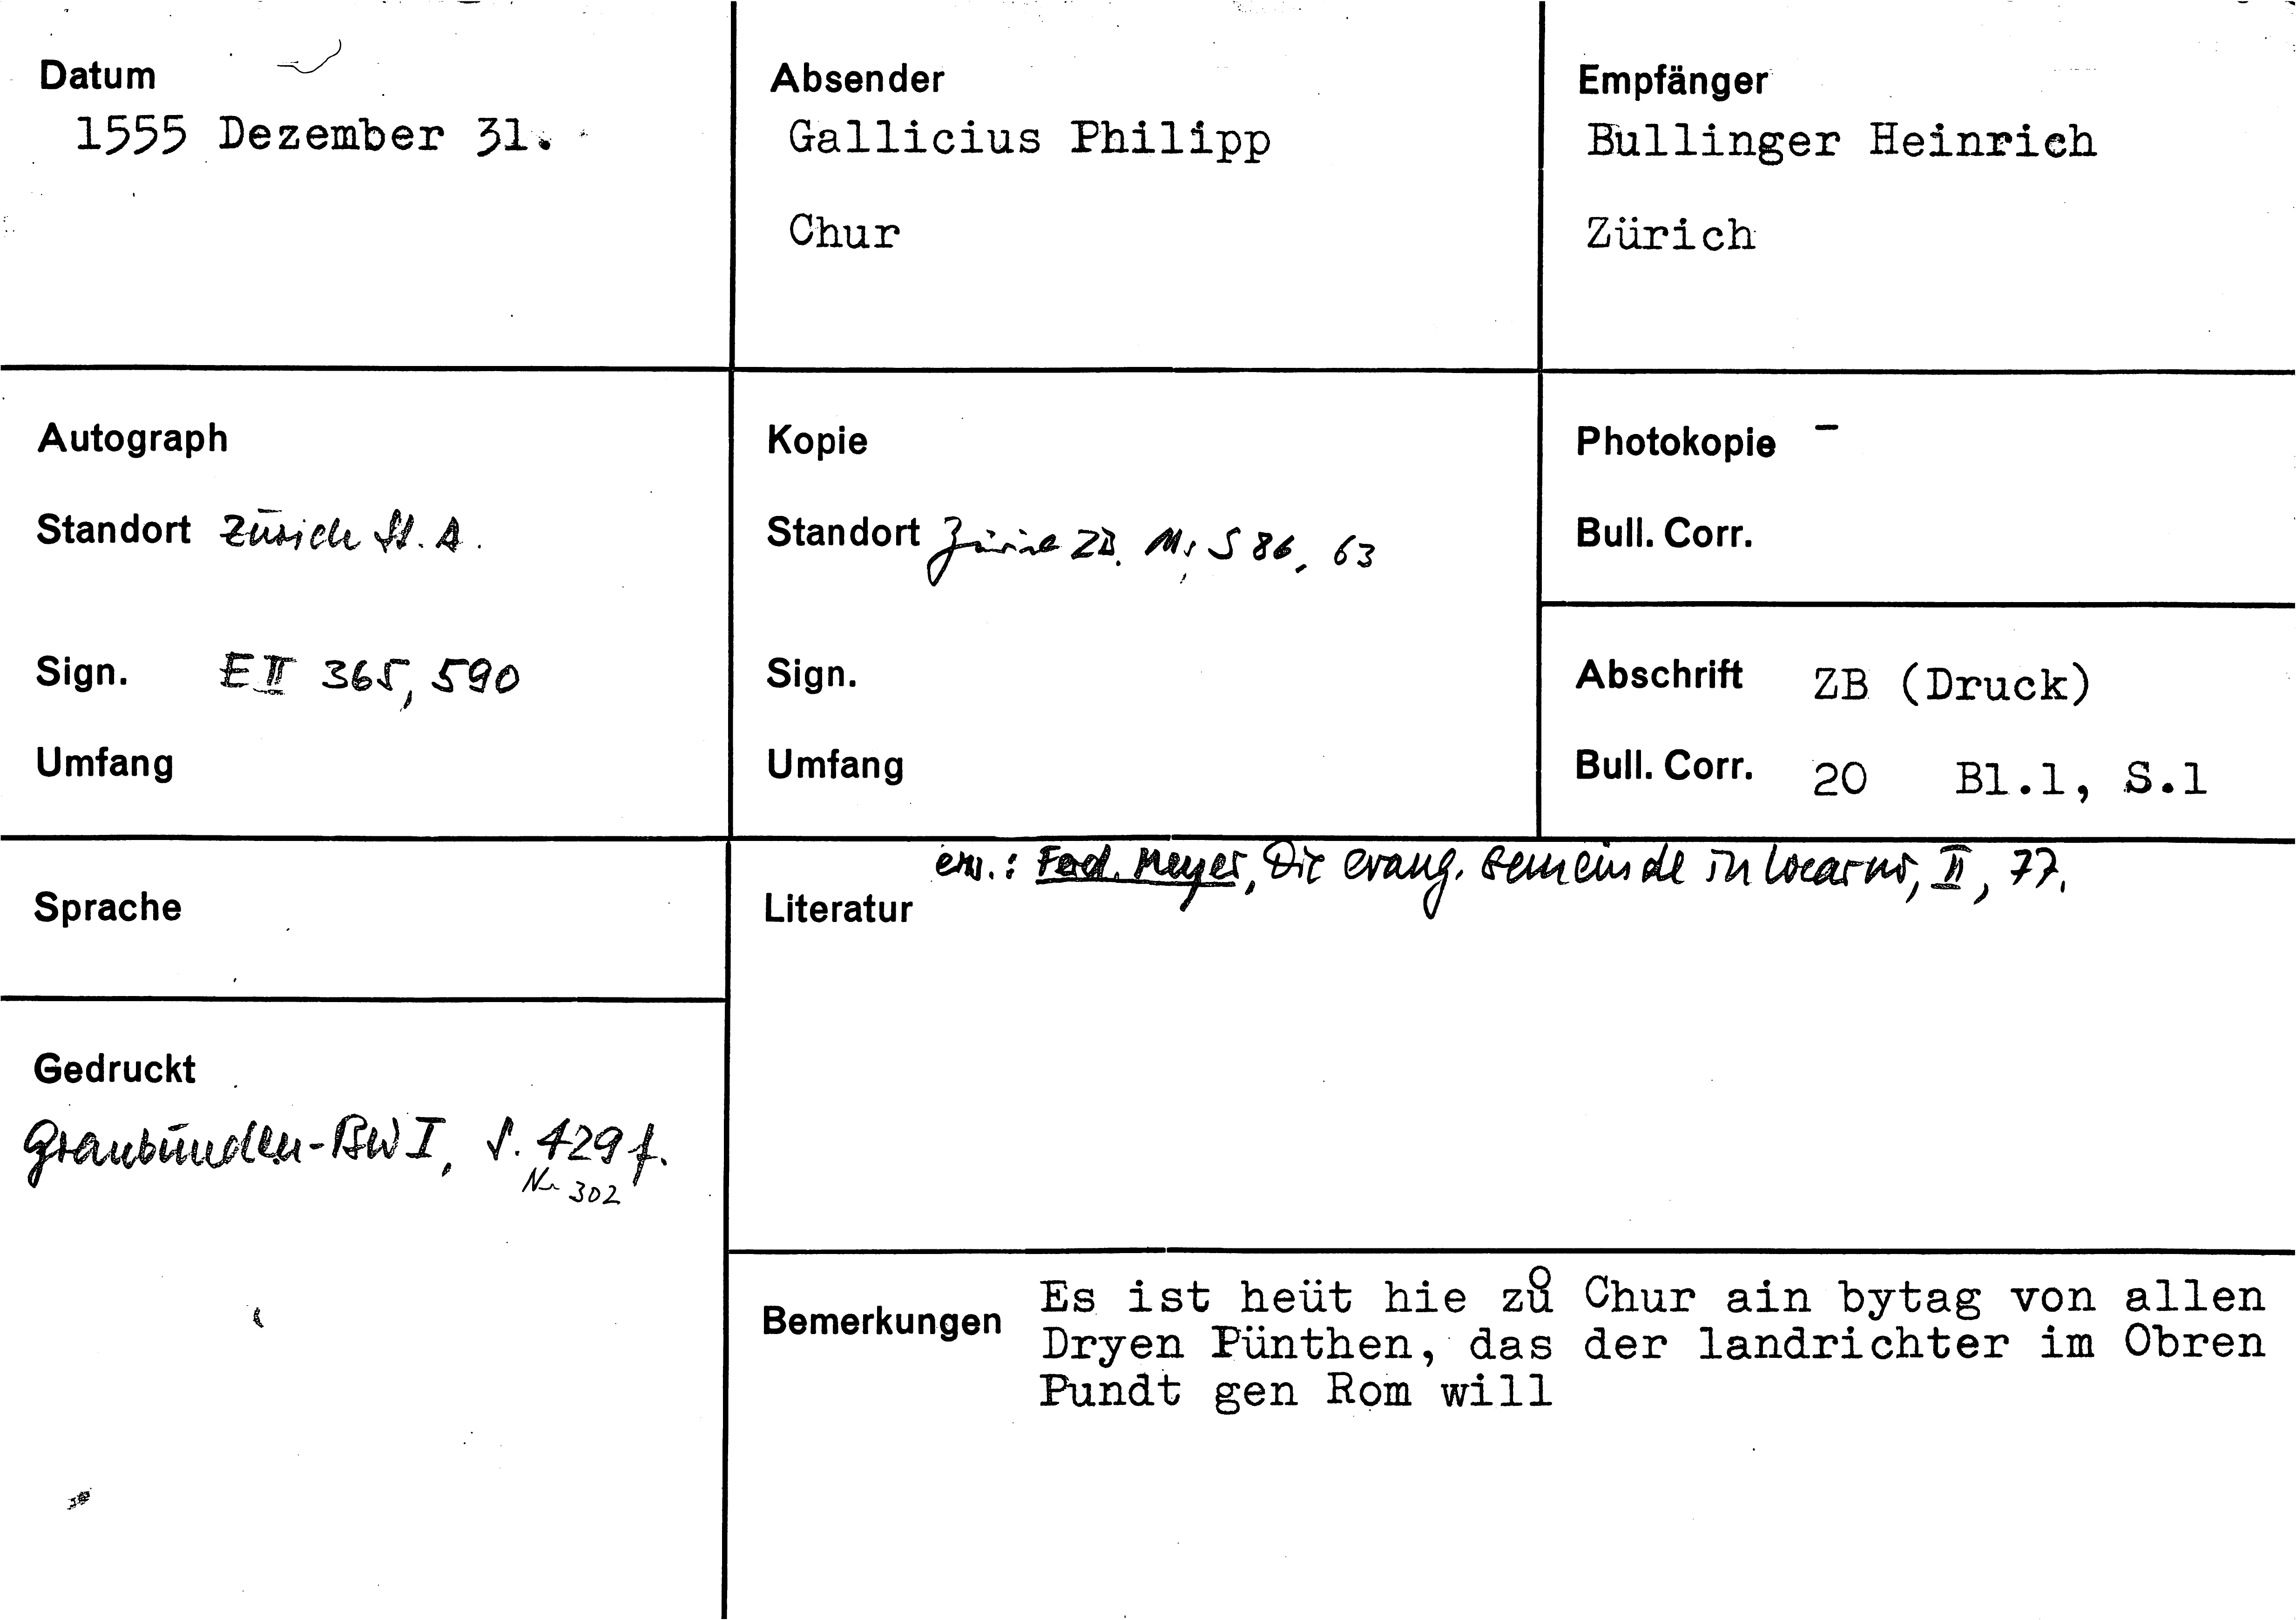 Datum
1555 Dezember 31.
Absender
Gallicius Philipp
Chur
Empfänger
Bullinger Heinrich
Zürich
Autograph
Standort Zürich St. A.
Sign. E II 365, 590
Umfang
Kopie
Standort Zürich ZB. Ms S 86, 63
Sign.
Umfang
Photokopie –
Bull. Corr.
Abschrift ZB (Druck)
Bull. Corr. 20 Bl.1, S.1
Sprache
Gedruckt
Graubünden-BW I, S. 429 f.
Nr 302
erw.: Ferd. Meyer, Die evang. Gemeinde in Locarno, II, 77.
Literatur
Bemerkungen
Es ist heüt hie zů Chur ain bytag von allen
Dryen Pünthen, das der landrichter im Obren
Pundt gen Rom will